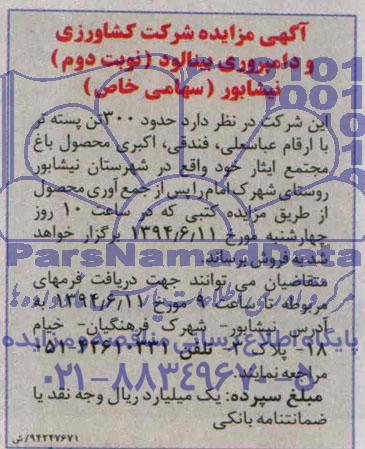 آگهی مزایده شرکت کشاورزی
و دامپروری بینالود (نوبت دوم)
نیشابور (سهامی خاص)
این شرکت در نظر دارد حدود ۳۰۰تن پسته تر
با ارقام عباسعلی، فندقی، اکبری محصول باغ
مجتمع ایثار خود واقع در شهرستان نیشابور
روستای شهرک امام را پس از جمع آوری محصول
از طریق مزایده کتبی که در ساعت ۱۰ روز
چهارشنبه مورخ ۱۳۹۴/۶/۱۱ برگزار خواهد
شد به فروش برساند.
متقاضیان می توانند جهت دریافت فرمهای
مربوطه تا ساعت ۹ مورخ ۱۳۹۴/۶/۱۱ به
آدرس نیشابور- شهرک فرهنگیان- خیام
۱۸- پلاک ۲- تلفن ۴۲۶۱۰۳۳۱-۰۵۱
مراجعه نمایند.
مبلغ سپرده: یک میلیارد ریال وجه نقد یا
ضمانتنامه بانکی
۹۴۲۴۷۶۷۱/ش
ParsNamadData
پایگاه اطلاع رسانی مناقصه و مزایده
۰۲۱-۸۸۳۴۹۶۷۰-۵